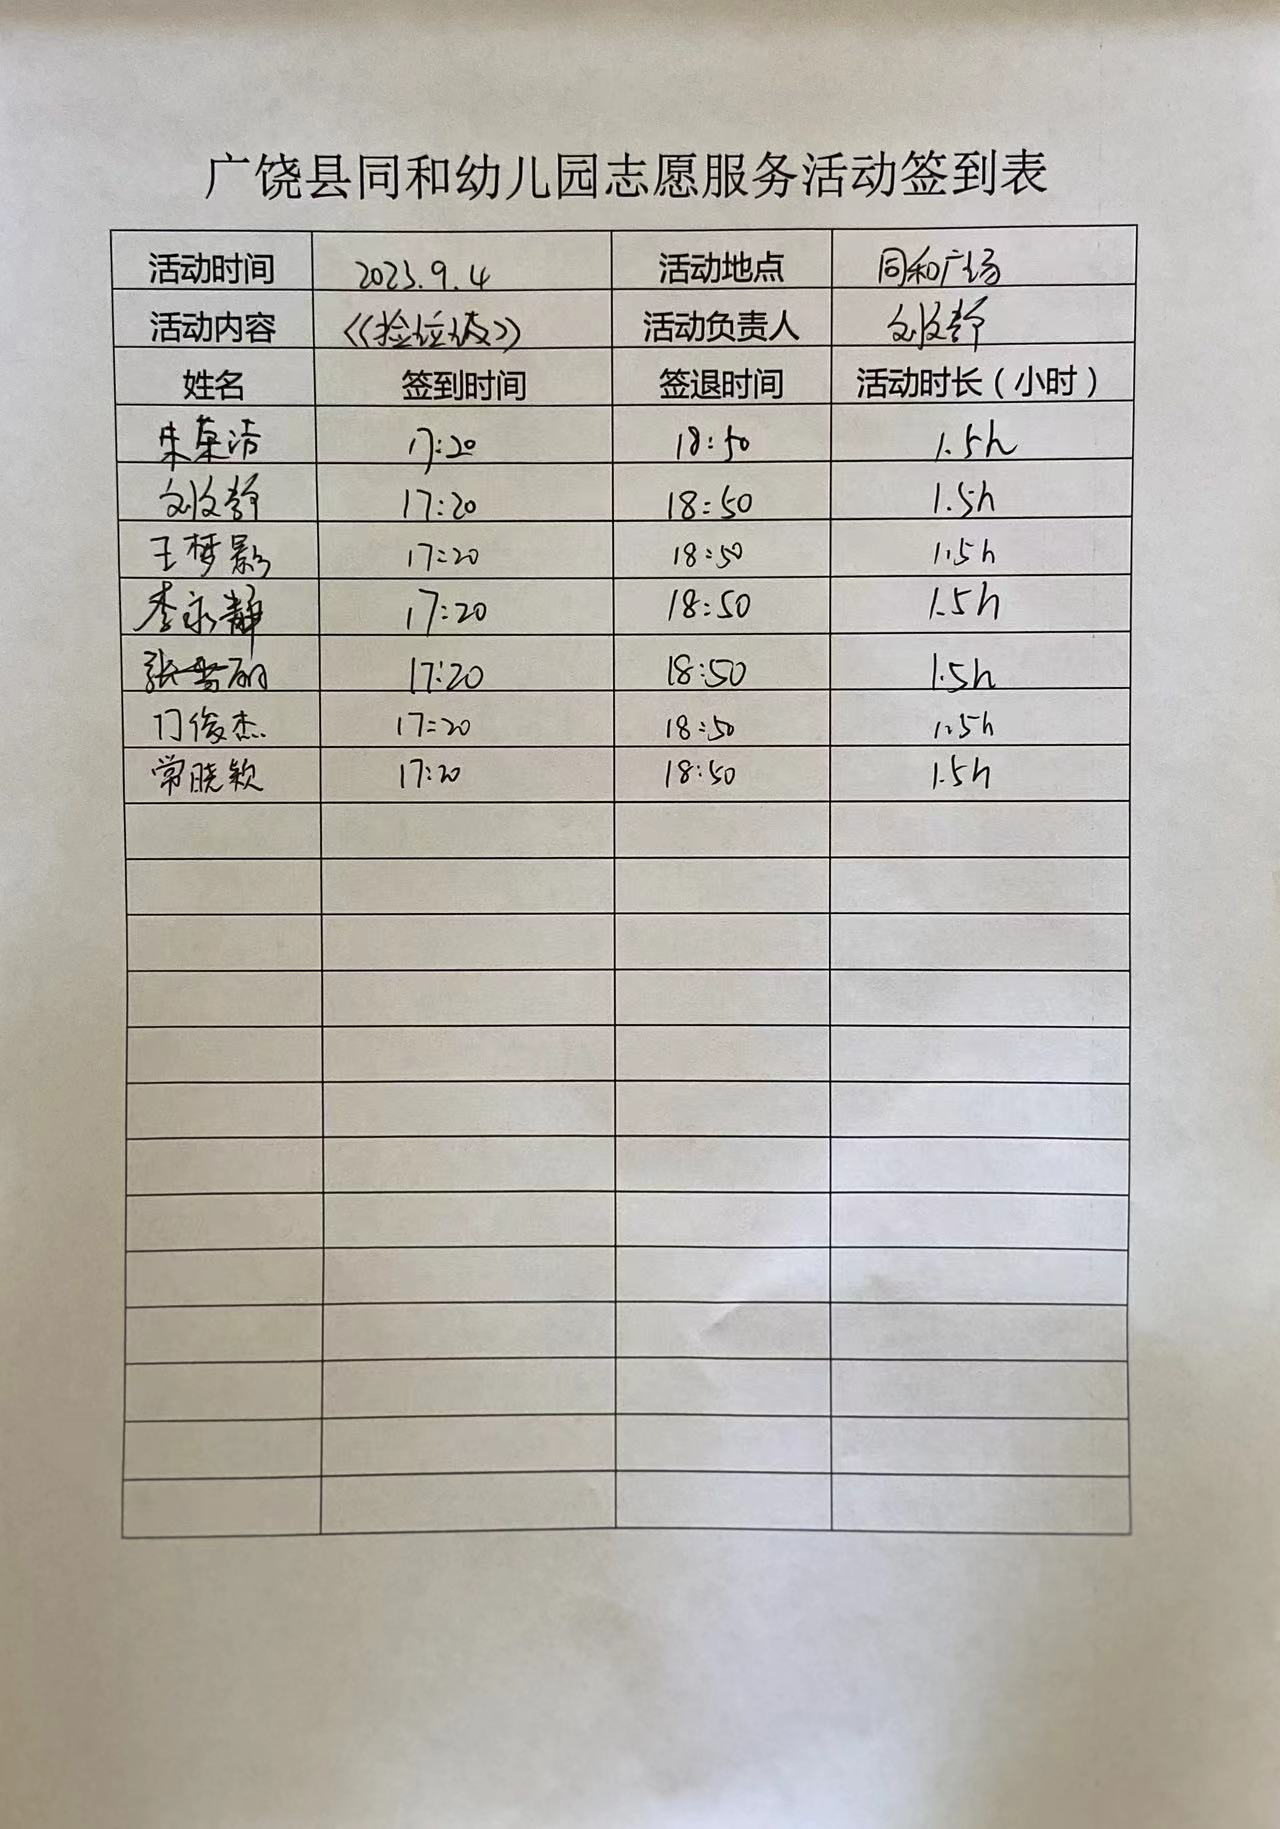 广饶县同和幼儿园志愿服务活动签到表
活动时间 2023.9.4 活动地点 同和广场
活动内容 《捡垃圾》 活动负责人
姓名 签到时间 签退时间 活动时长（小时）
朱荣洁 17:20 18:50 1.5h
17:20 18:50 1.5h
王梦影 17:20 18:50 1.5h
李永静 17:20 18:50 1.5h
17:20 18:50 1.5h
门俊杰 17:20 18:50 1.5h
常晓颖 17:20 18:50 1.5h